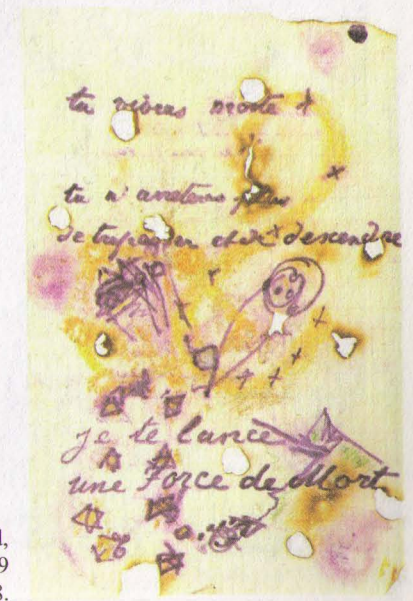 tu vivras morte &
tu n'arrêteras plus
de trépasser et de descendre
je te lance
une Force de Mort
l,
9
3.